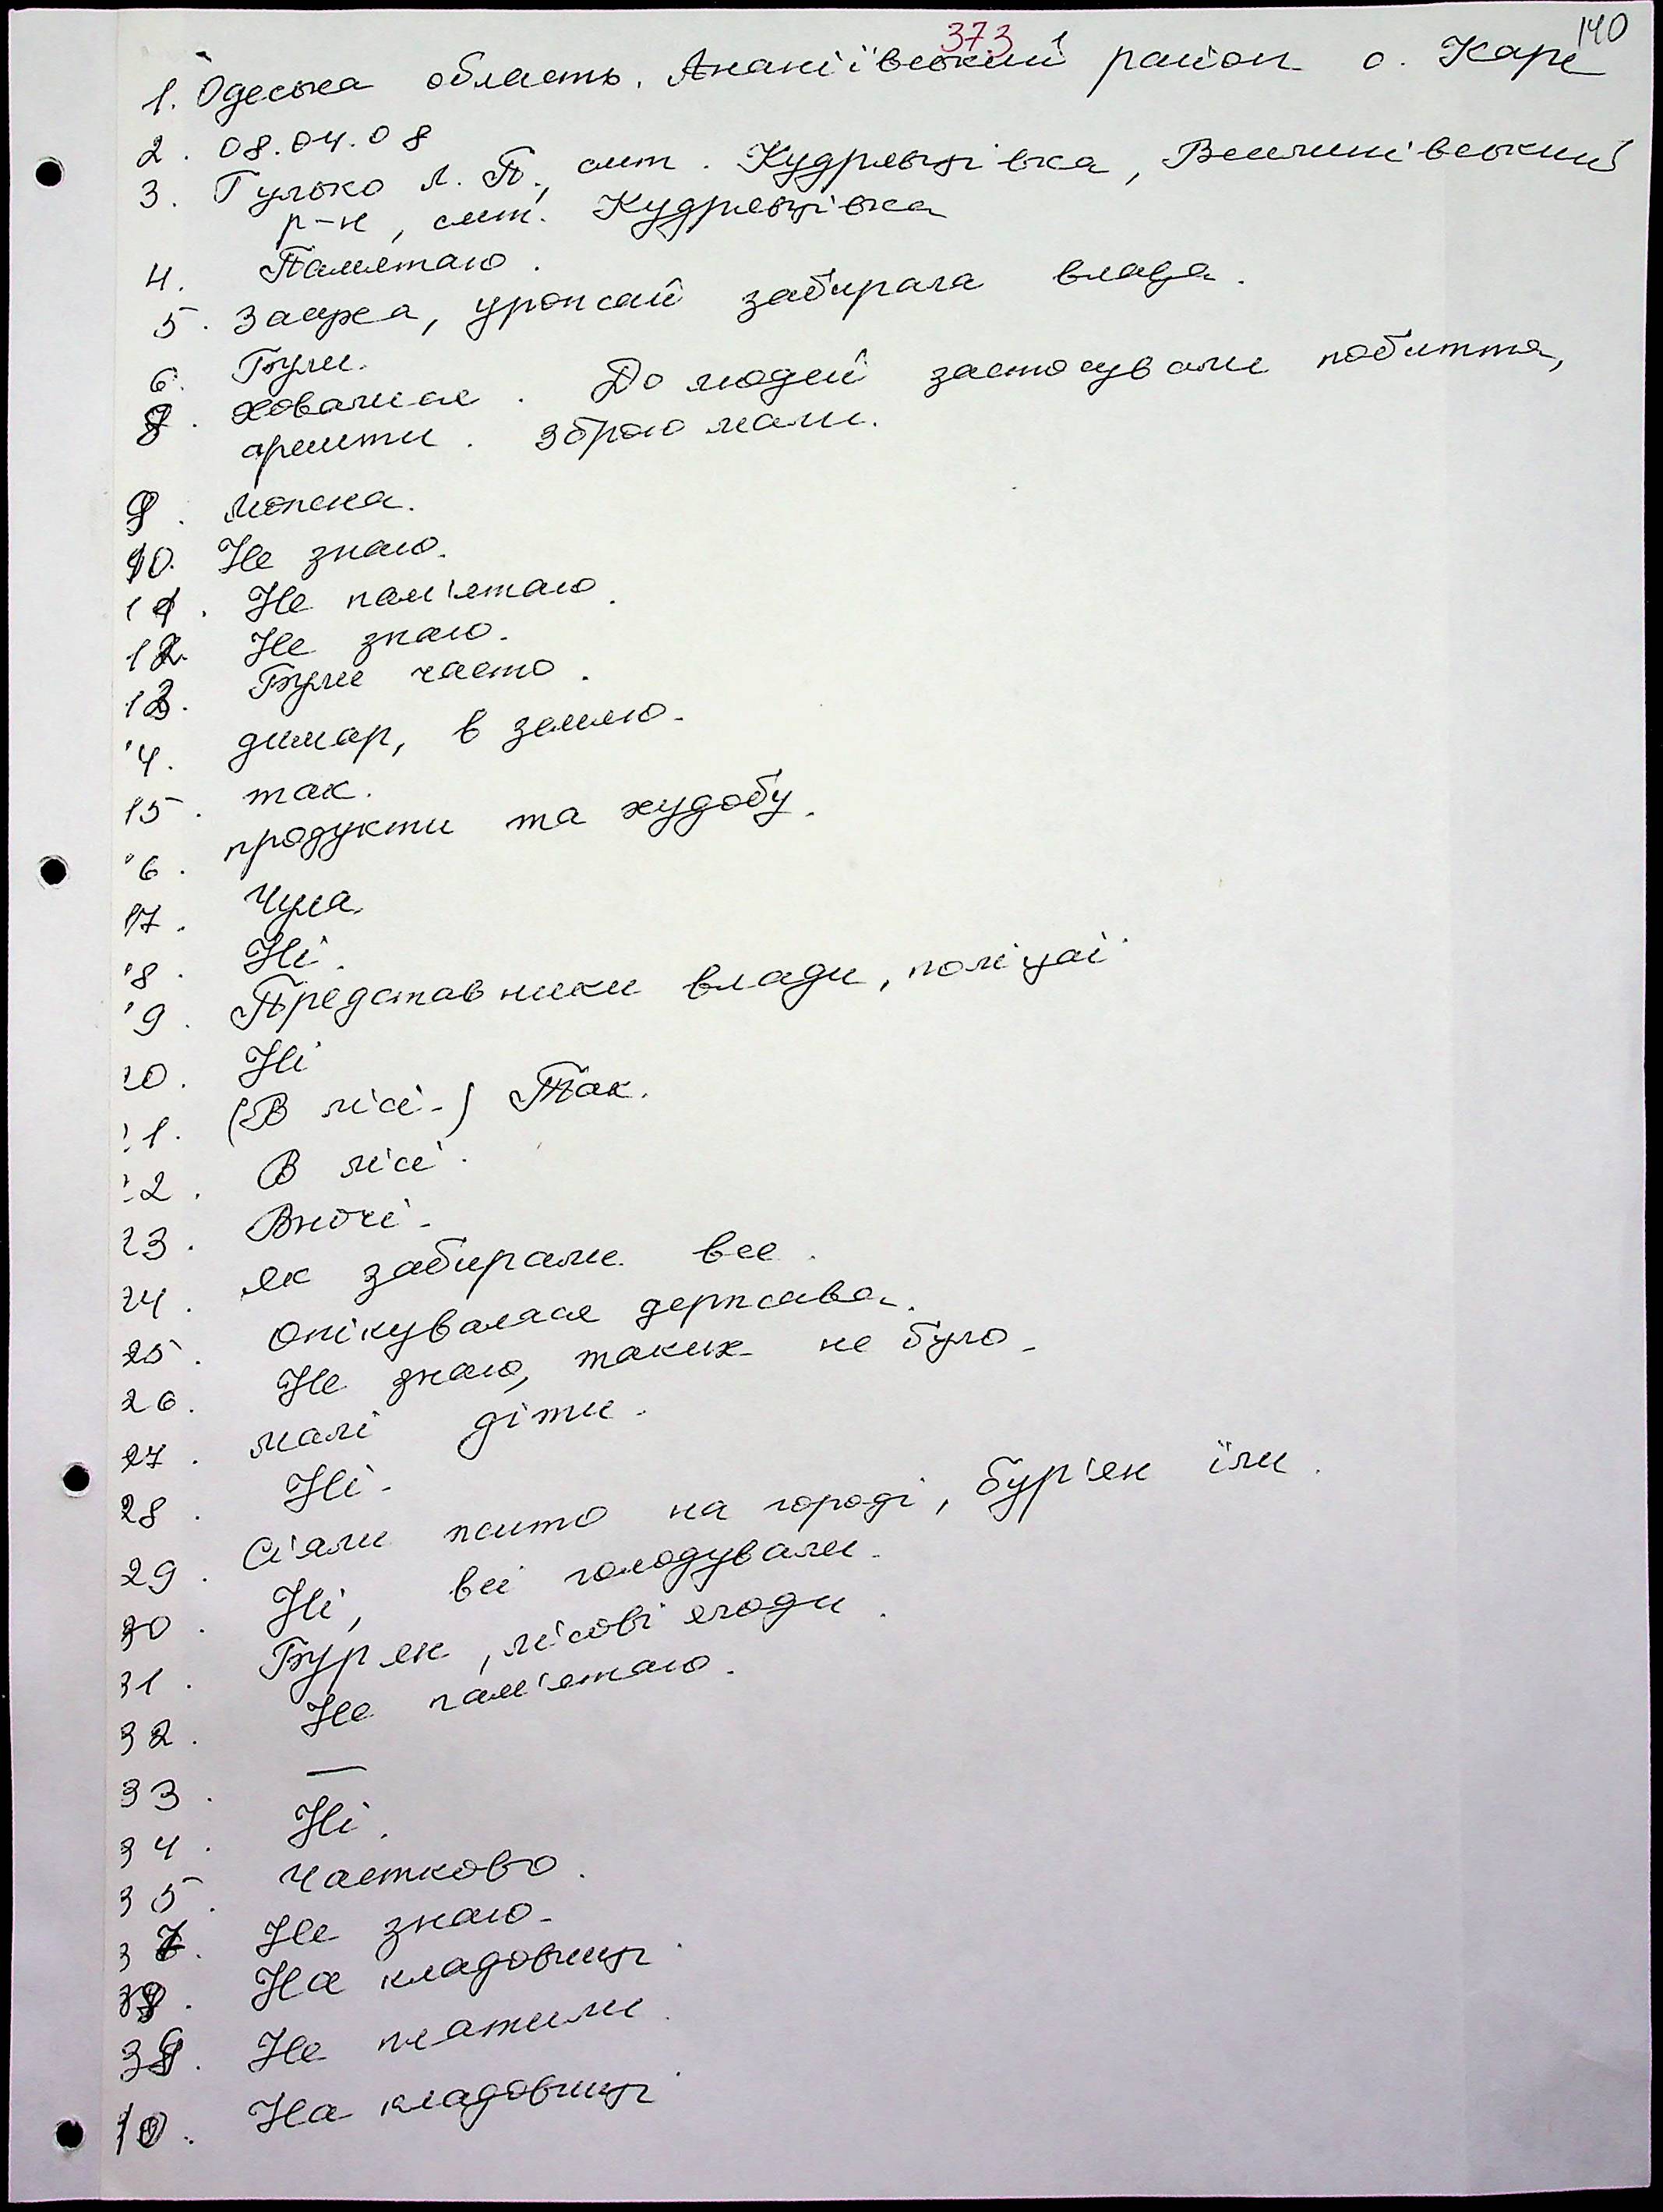 373
140
1. Одеська область. Ананіївський район с. Каре
2. 08.04.08
3. Гулько Л. П., смт. Кудрявцівка, Веселинівський
р-н, смт. Кудрявцівка
4. Памятаю.
5. Засуха, урожай забирала влада.
6. Були.
8. ховалися. До людей застосували побиття,
арешти. Зброю мали.
9. Можна.
10. Не знаю.
11. Не пам'ятаю.
12. Не знаю.
13. Були часто.
14. димар, в землю.
15. так.
16. продукти та худобу.
17. Чула.
18. Ні.
19. Представники влади, поліцаї
20. Ні
21. (В лісі.) Так.
22. В лісі.
23. Вночі.
24. як забирали все.
25. Опікувалася держава.
26. Не знаю, таких не було.
27. малі діти.
28. Ні.
29. Сіяли жито на городі, бур'ян їли.
30. Ні, всі голодували.
31. Бурян, лісові ягоди.
32. Не пам'ятаю.
33. —
34. Ні.
35. Частково.
37. Не знаю.
38. На кладовищі.
39. Не платили.
40. На кладовищі.